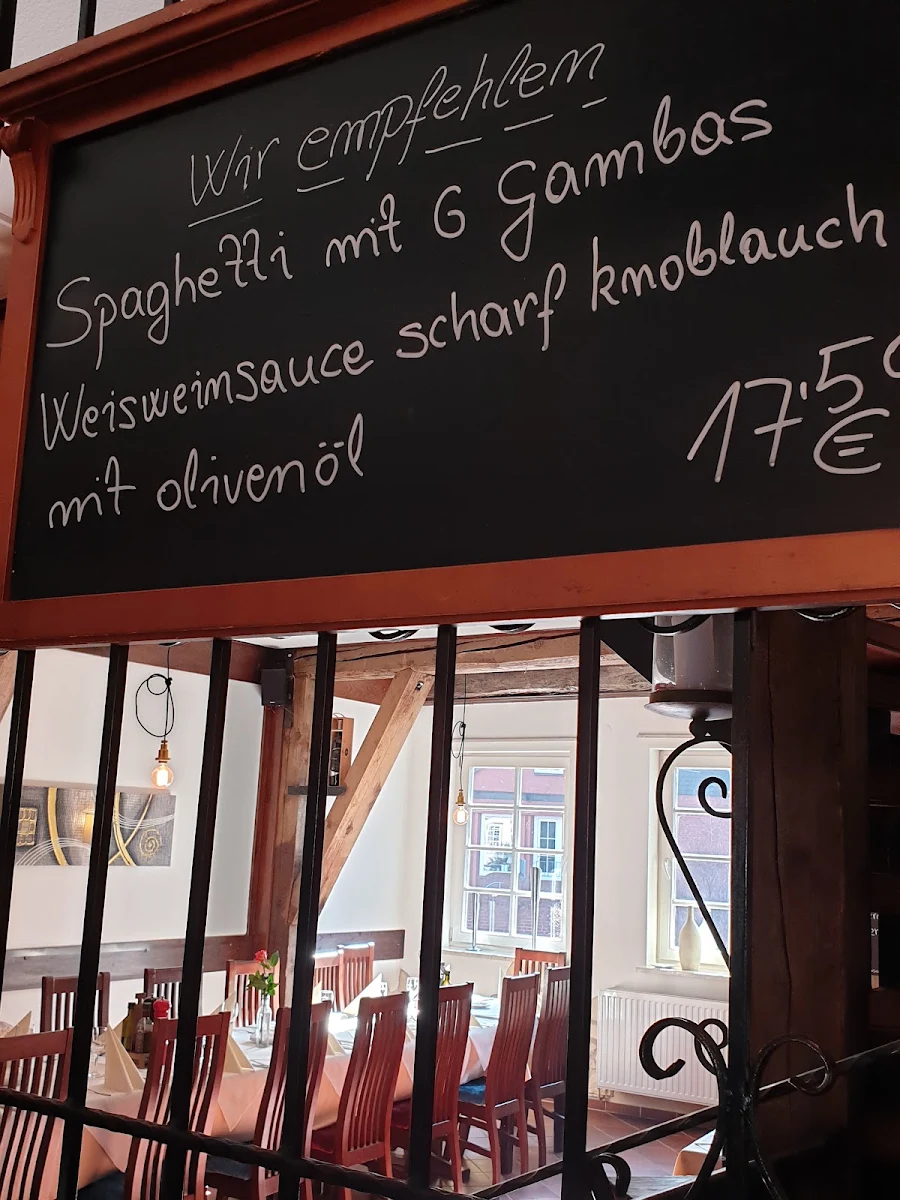 Wir empfehlen
Spaghetti mit 6 Gambas
Weisweinsauce scharf knoblauch
mit olivenöl
17,50
€